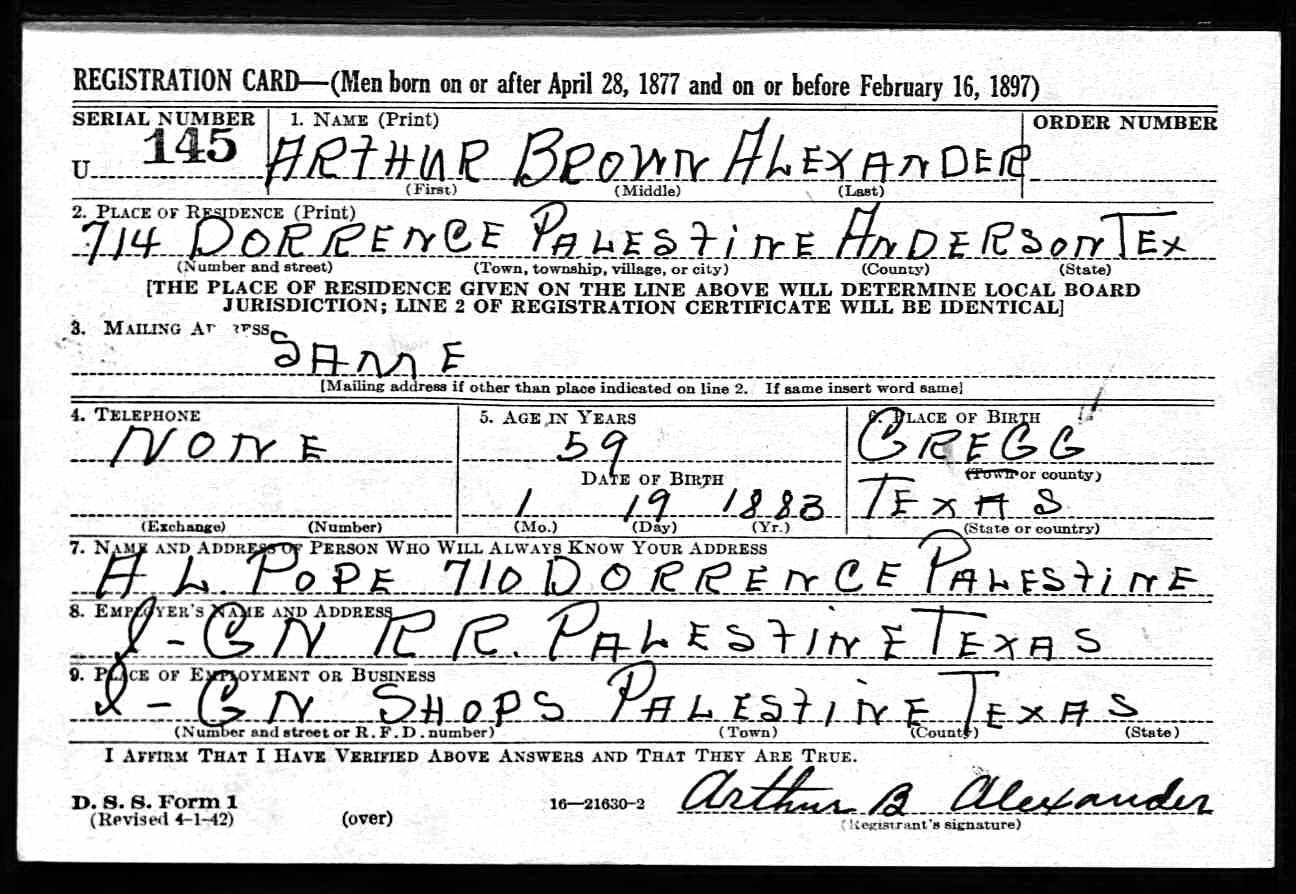 REGISTRATION CARD—(Men born on or after April 28, 1877 and on or before February 16, 1897)
SERIAL NUMBER 1. NAME (Print) ORDER NUMBER
U 145 ARTHUR BROWN ALEXANDER
(First) (Middle) (Last)
2. PLACE OF RESIDENCE (Print)
714 DORRENCE PALESTINE ANDERSON TEX
(Number and street) (Town, township, village, or city) (County) (State)
[THE PLACE OF RESIDENCE GIVEN ON THE LINE ABOVE WILL DETERMINE LOCAL BOARD
JURISDICTION; LINE 2 OF REGISTRATION CERTIFICATE WILL BE IDENTICAL]
3. MAILING ADDRESS
SAME
[Mailing address if other than place indicated on line 2. If same insert word same]
4. TELEPHONE 5. AGE IN YEARS 6. PLACE OF BIRTH
NONE 59 GREGG
DATE OF BIRTH (Town or county)
1 19 1883 TEXAS
(Exchange) (Number) (Mo.) (Day) (Yr.) (State or country)
7. NAME AND ADDRESS OF PERSON WHO WILL ALWAYS KNOW YOUR ADDRESS
A L. POPE 710 DORRENCE PALESTINE
8. EMPLOYER'S NAME AND ADDRESS
I-GN RR. PALESTINE TEXAS
9. PLACE OF EMPLOYMENT OR BUSINESS
I-GN SHOPS PALESTINE TEXAS
(Number and street or R. F. D. number) (Town) (County) (State)
I AFFIRM THAT I HAVE VERIFIED ABOVE ANSWERS AND THAT THEY ARE TRUE.
D. S. S. Form 1 16—21630-2 Arthur B Alexander
(Revised 4-1-42) (over) (Registrant's signature)